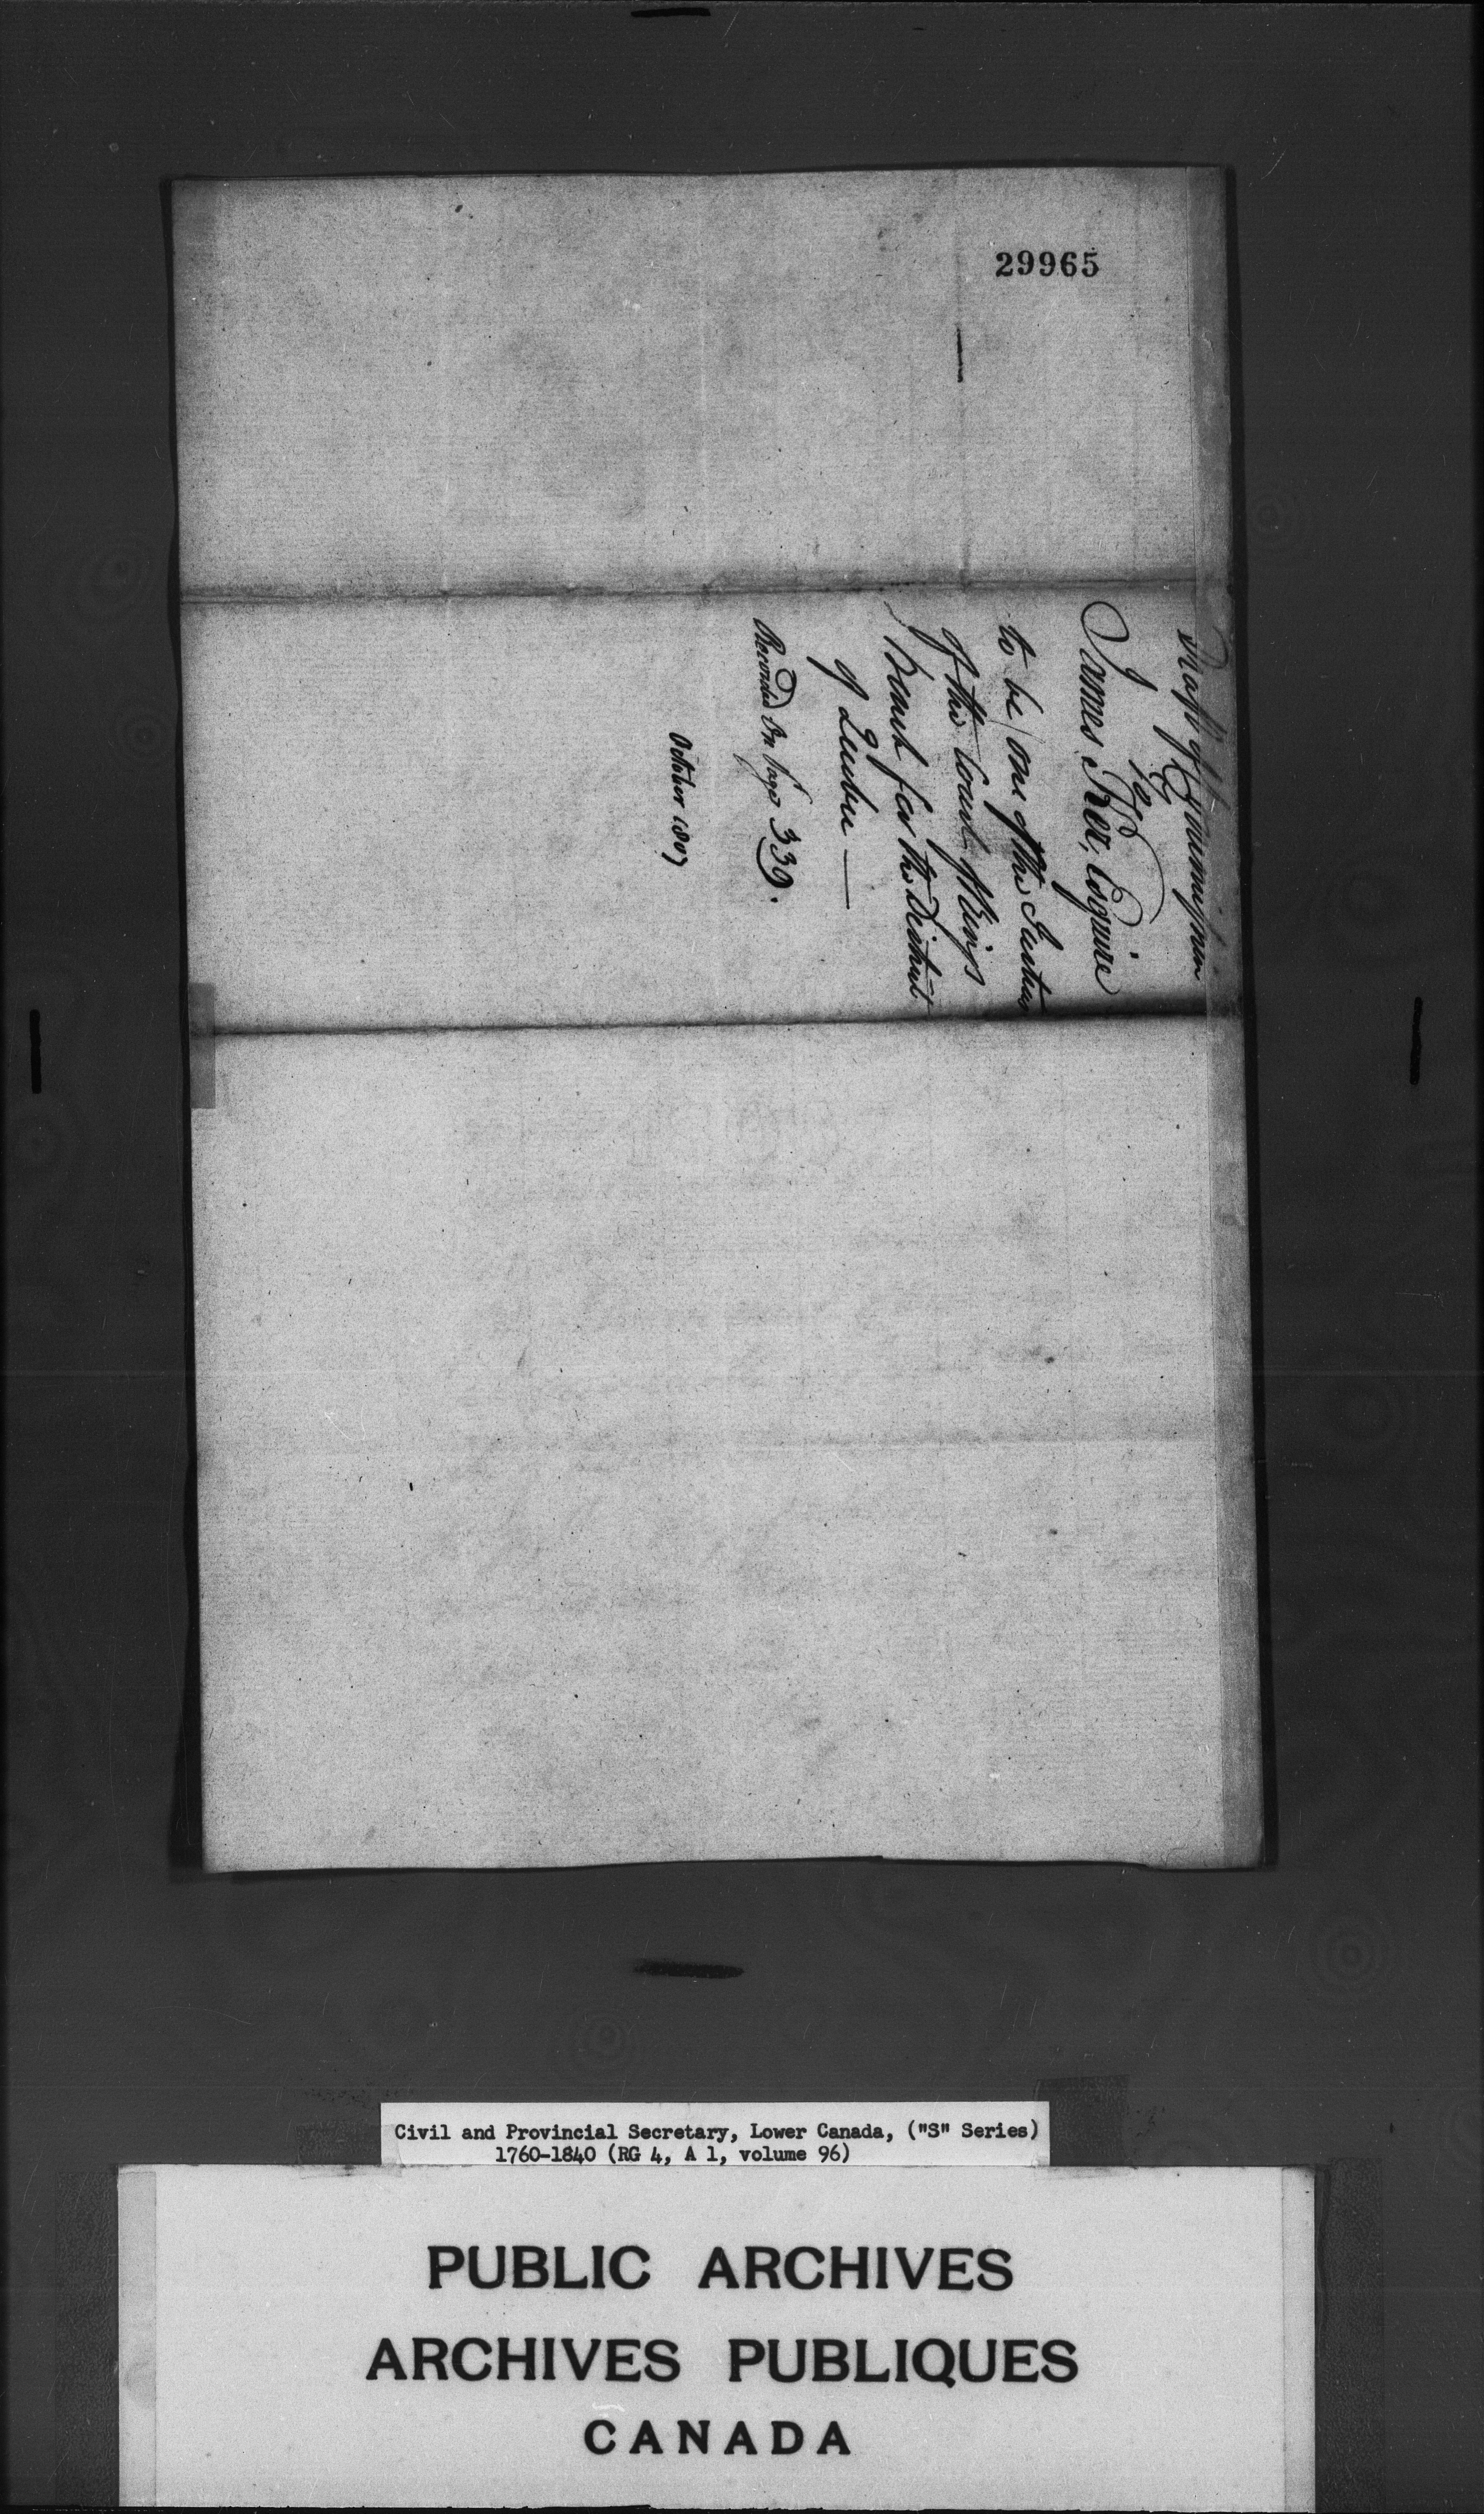 29965
Draft of Commission
to
James Ker, Esquire
to be one of the Justices
of the Court of Kings
Bench for the District
of Quebec —
Recorded On Page 339.
October 1807
Civil and Provincial Secretary, Lower Canada, ("S" Series)
1760-1840 (RG 4, A 1, volume 96)
PUBLIC ARCHIVES
ARCHIVES PUBLIQUES
CANADA